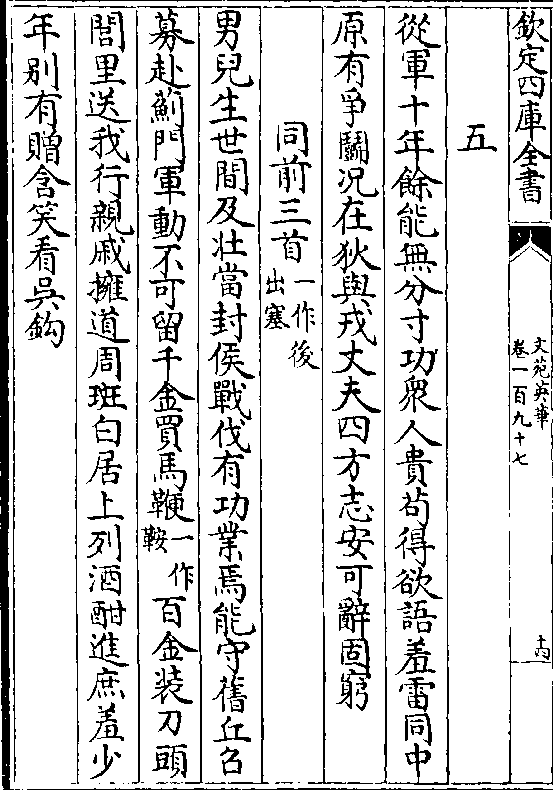 欽定四庫全書
文苑英華
卷一百九十七
五
從軍十年餘能無分寸功衆人貴茍得欲語羞雷同中
原有爭鬭況在狄與戎丈夫四方志安可辭固窮
同前三首一作後出塞
男兒生世間及壯當封侯戰伐有功業焉能守舊丘召
募赴薊門軍動不可留千金買馬鞭一作鞍百金装刀頭
閭里送我行親戚擁道周斑白居上列酒酣進庶羞少
年别有贈含笑看吳鈎